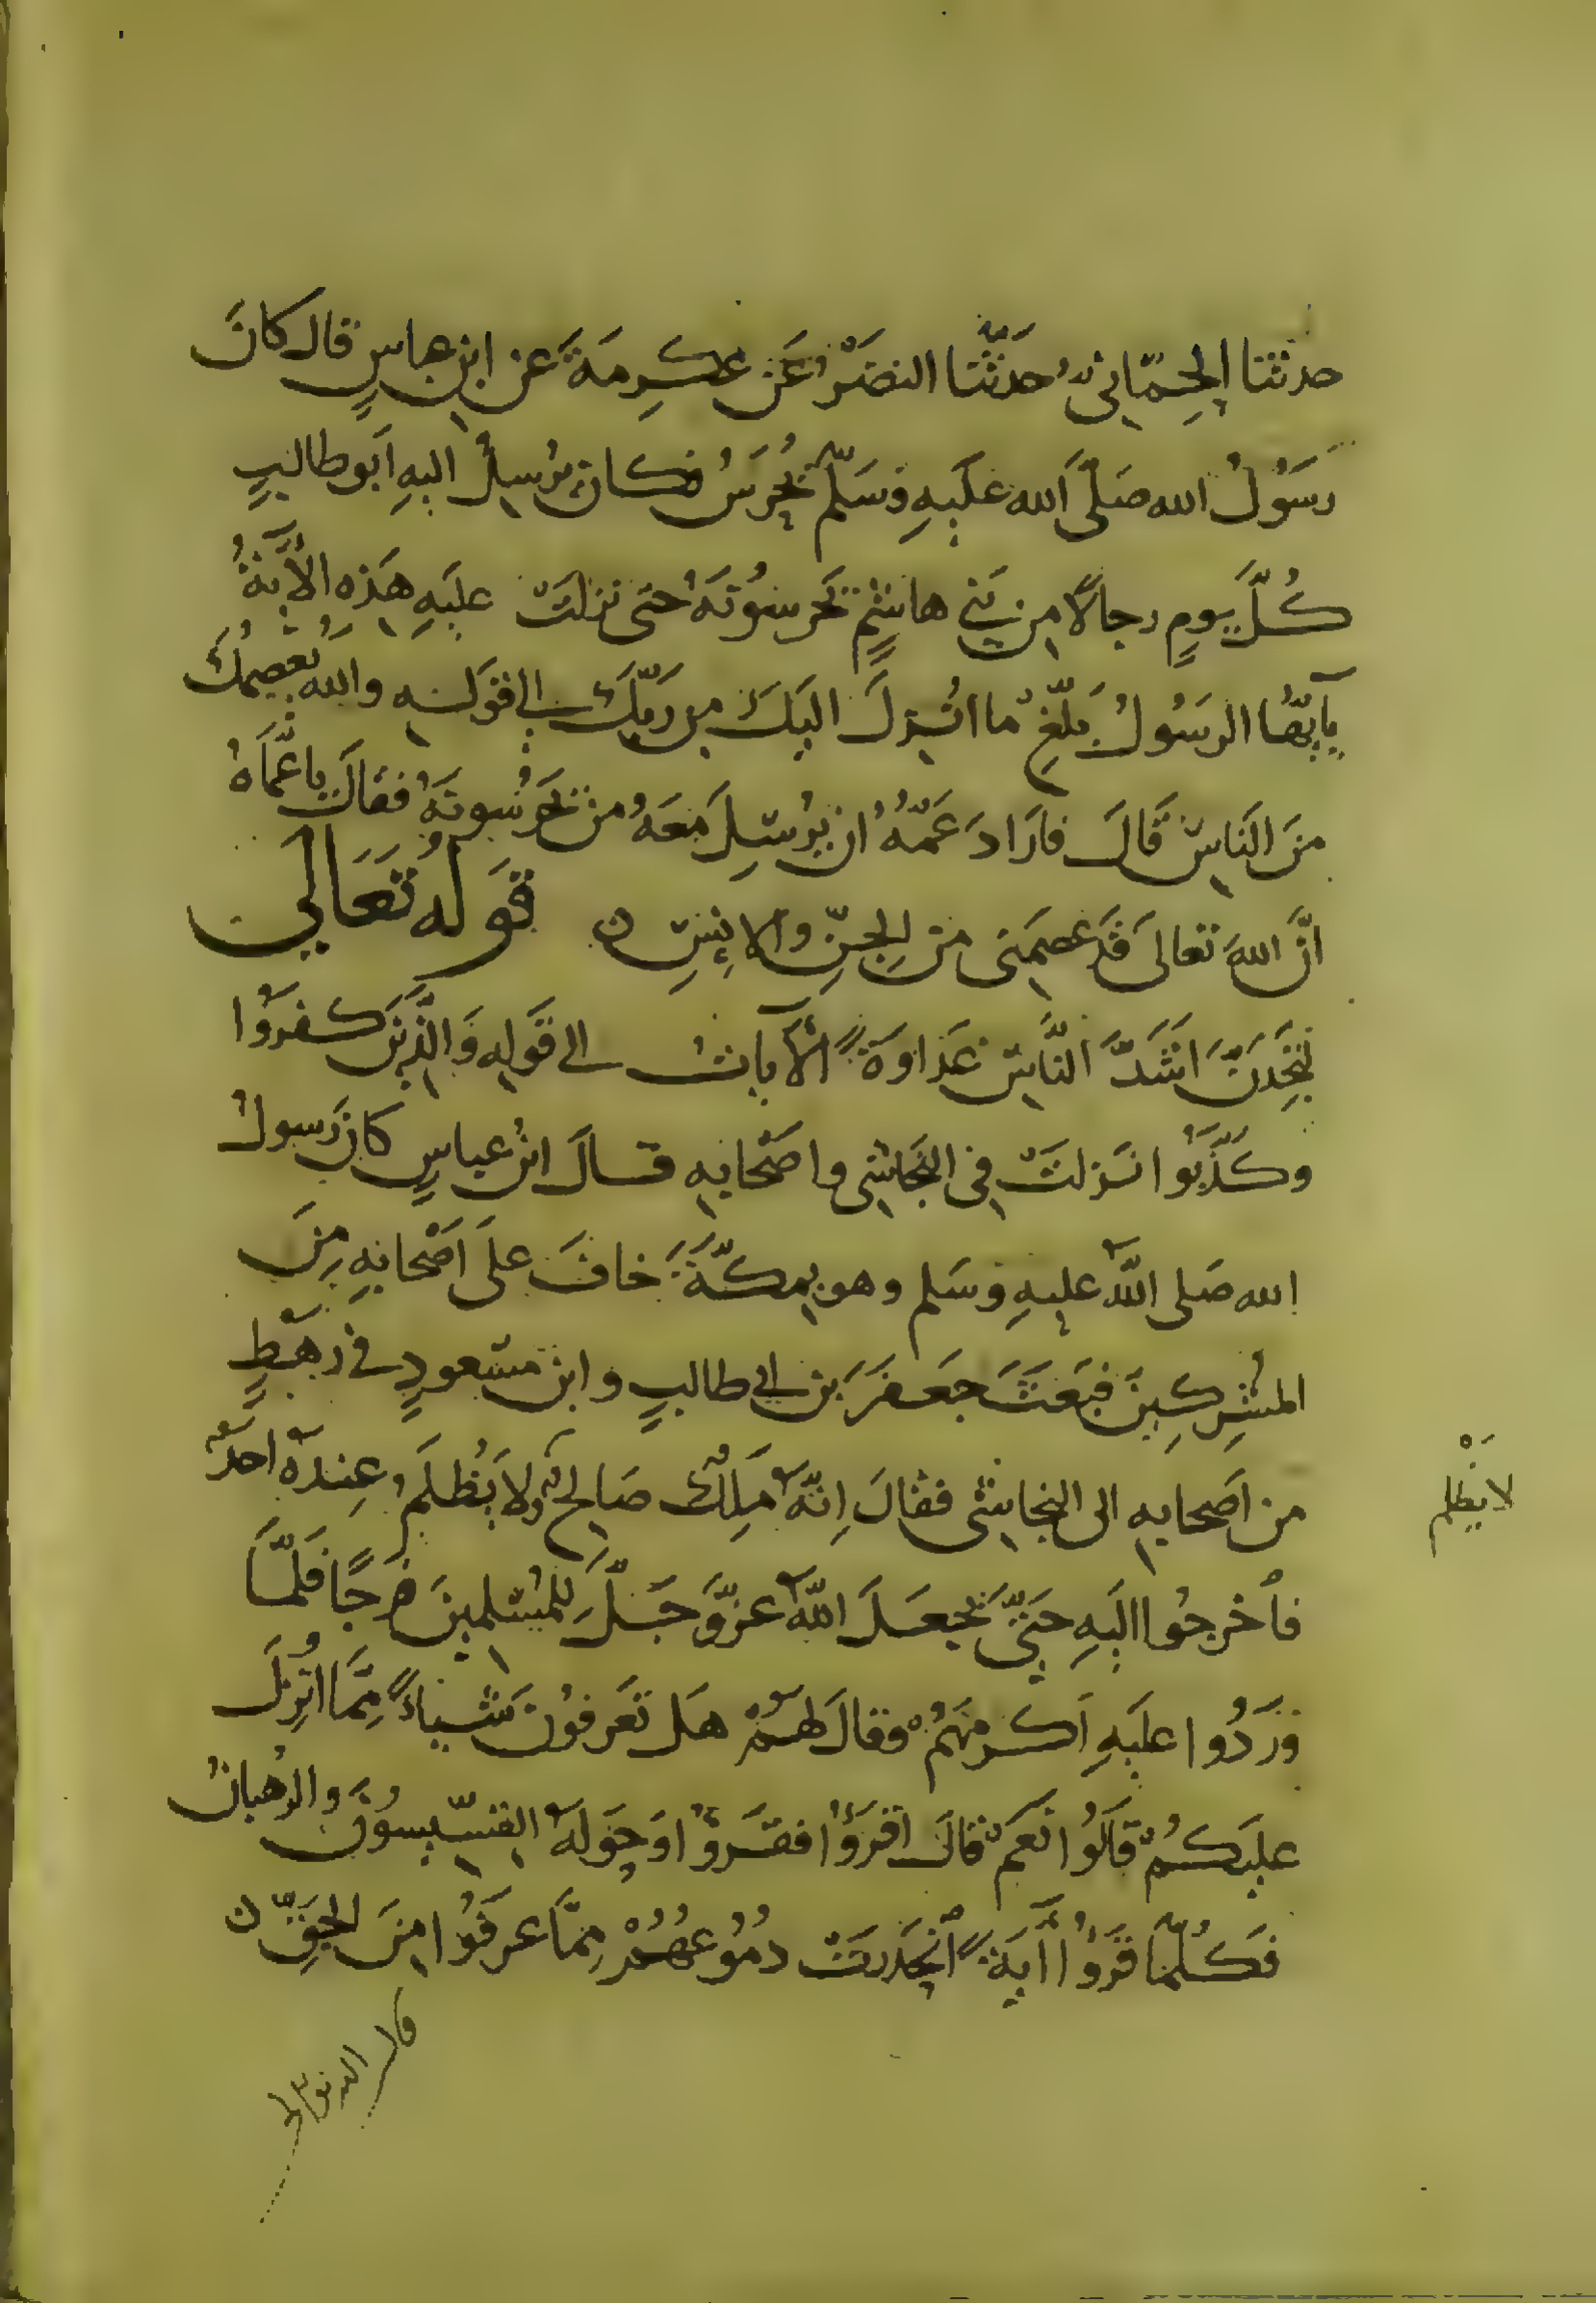 حدثنا الحِمّاني حدثنا النضر عن عكرمة عن ابن عباس قال كان
رسول الله صلى الله عليه وسلم يحرس فكان يرسل اليه ابو طالب
كل يوم رجالا من بني هاشم يحرسونه حتى نزلت عليه هذه الآية
يآيها الرسول بلغ ما انزل اليك من ربك الى قوله والله يعصمك
من الناس قال فاراد عمه ان يرسل معه من يحرسونه فقال يا عماه
ان الله تعالى قد عصمني من الجن والانس ن قوله تعالى
لتجدن اشد الناس عداوة الآيات الى قوله والذين كفروا
وكذبوا نزلت في النجاشي واصحابه قال ابن عباس كان رسول
الله صلى الله عليه وسلم وهو بمكة خاف على اصحابه من
المشركين فبعث جعفر بن ابي طالب وابن مسعود في رهط
من اصحابه الى النجاشي فقال انه ملك صالح ولا يظلم عنده احد
لا يظلم
فأخرجوا اليه حتى يجعل الله عز وجل للمسلمين فرجا فلما
وردوا عليه اكرمهم وقال لهم هل تعرفون شياء مما انزل
عليكم قالوا نعم قال اقرؤا فقروا وحوله القسيسون والرهبان
فكلما قروا آية انحدرت دموعهم مما عرفوا من الحق ن
قال